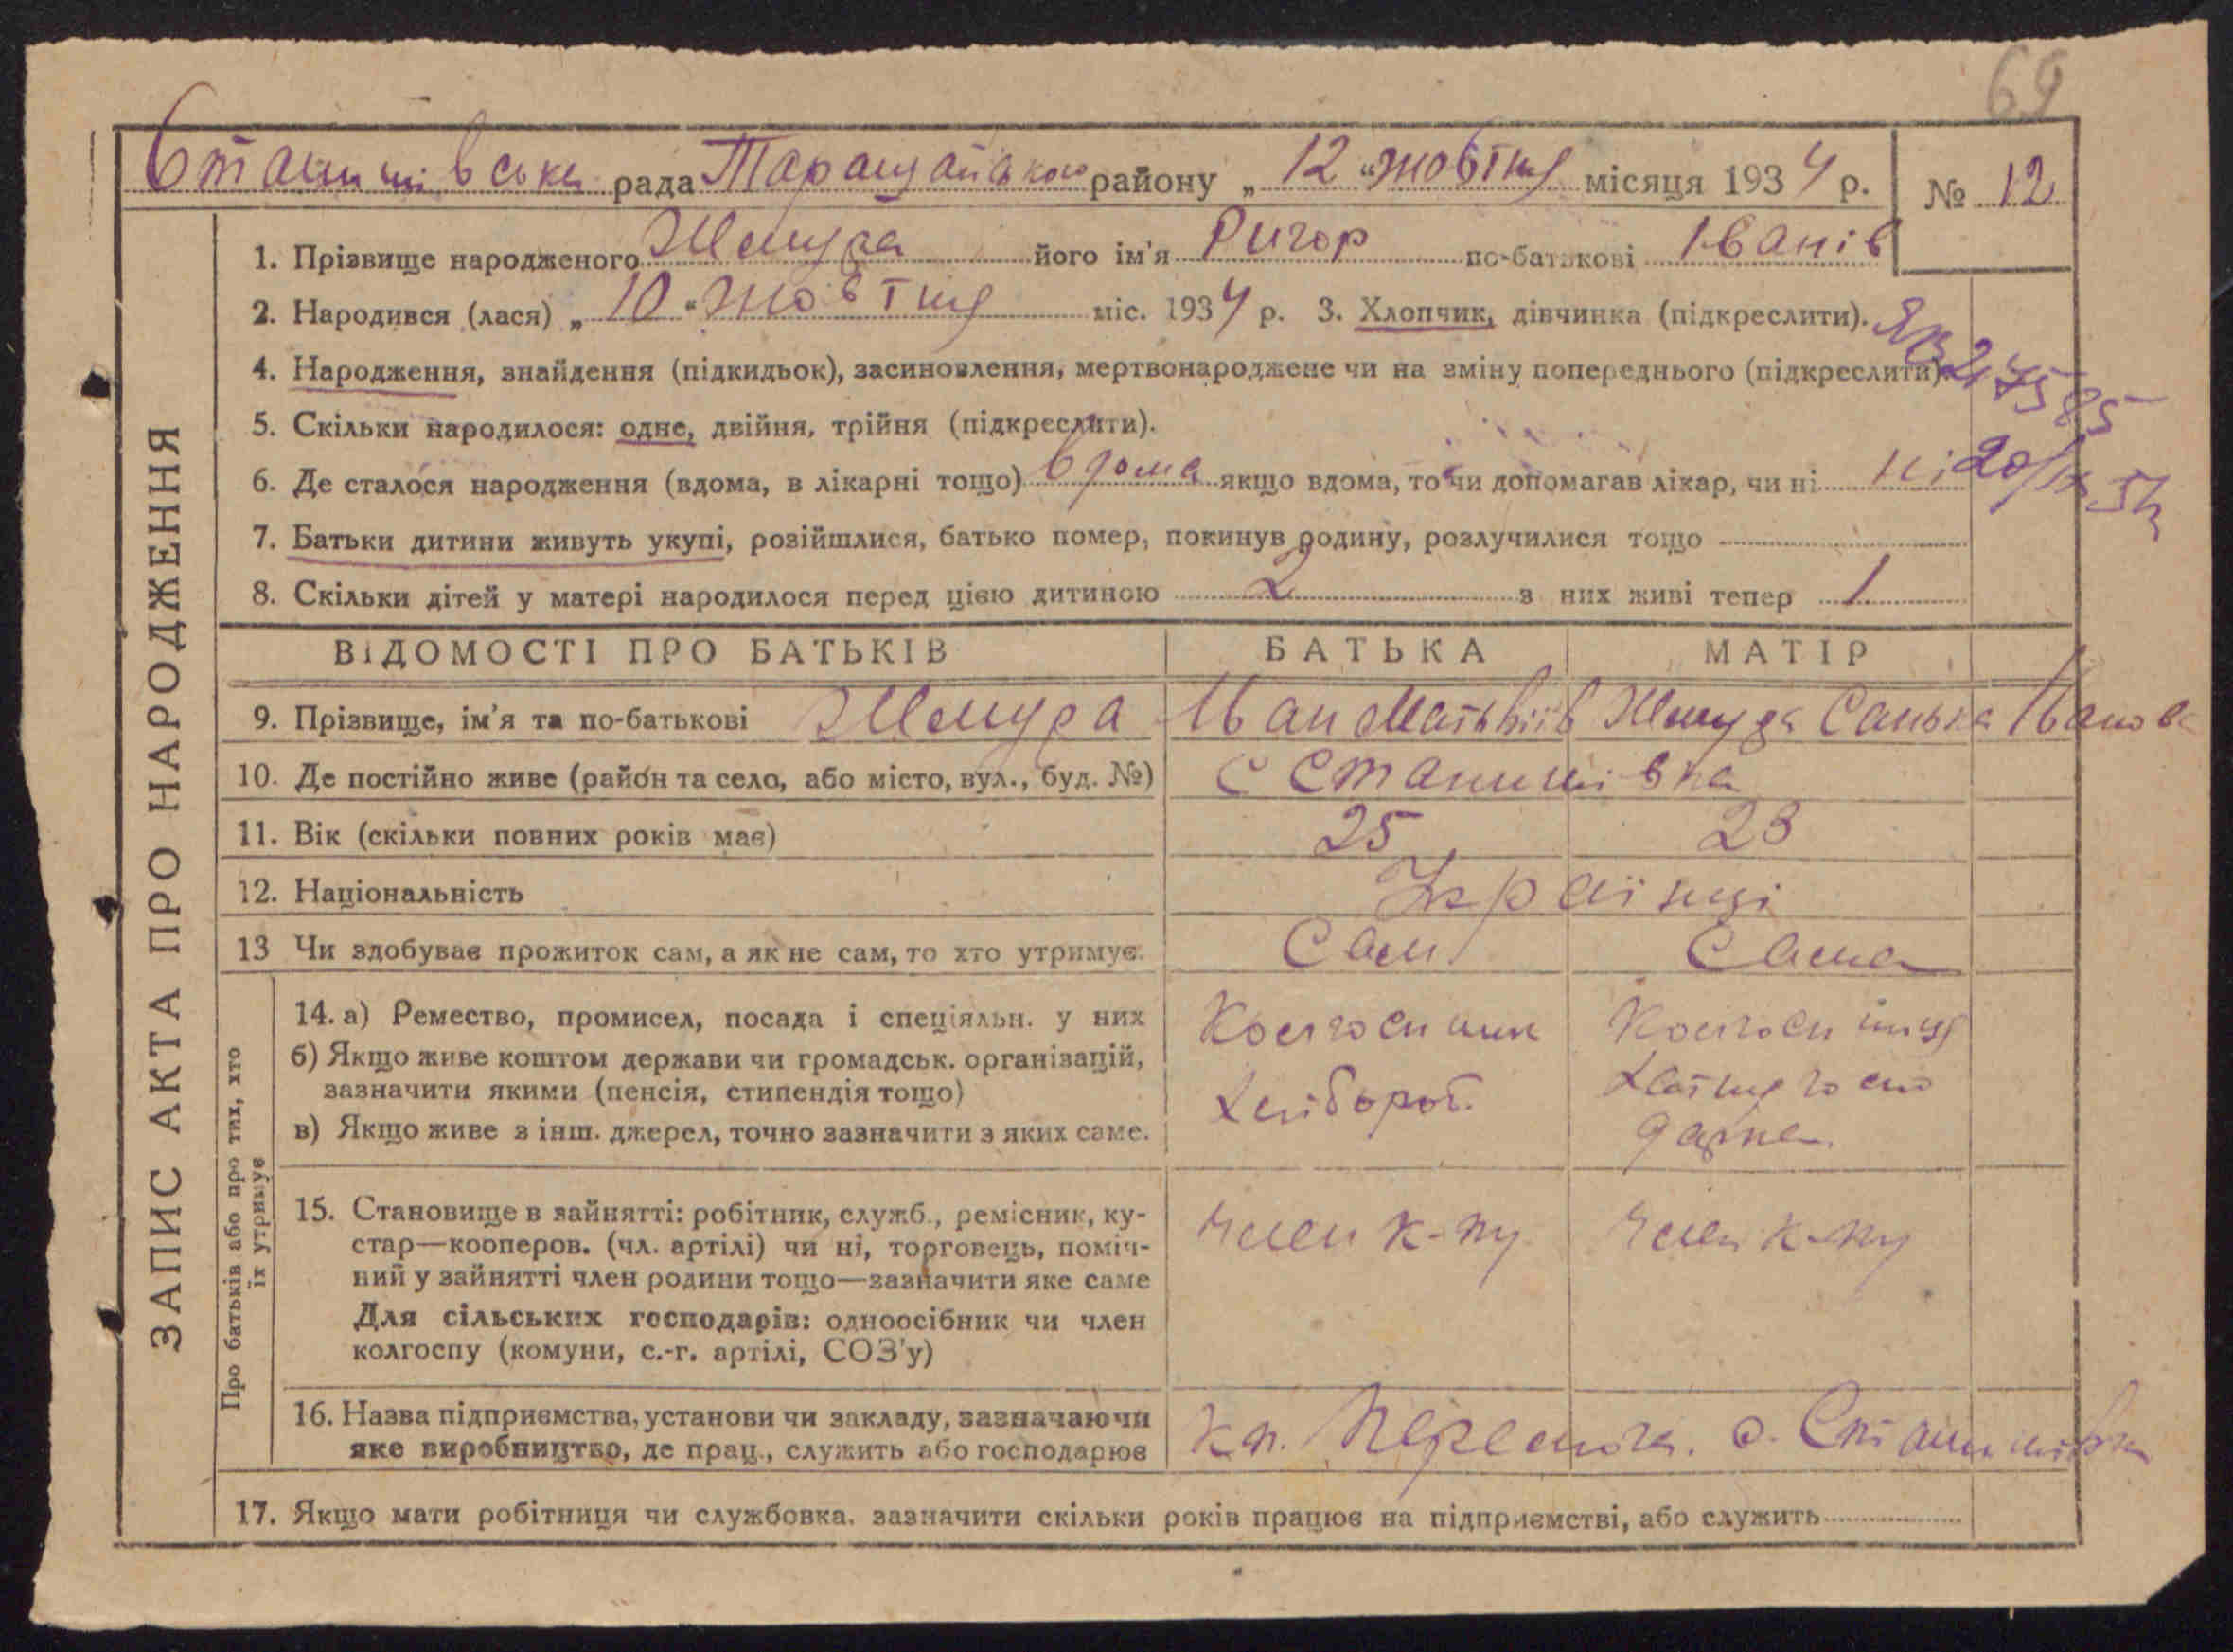 69
Станишівська рада Таращанського району „12“ жовтня місяця 1934 р. № 12
ЗАПИС АКТА ПРО НАРОДЖЕННЯ
1. Прізвище народженого Жмура його ім'я Ригор по-батькові Іванів
2. Народився (лася) „10“ жовтня міс. 1934 р. 3. Хлопчик, дівчинка (підкреслити).
4. Народження, знайдення (підкидьок), засиновлення, мертвонароджене чи на зміну попереднього (підкреслити)
5. Скільки народилося: одне, двійня, трійня (підкреслити).
6. Де сталося народження (вдома, в лікарні тощо) вдома якщо вдома, то чи допомагав лікар, чи ні ні
7. Батьки дитини живуть укупі, розійшлися, батько помер, покинув родину, розлучилися тощо
8. Скільки дітей у матері народилося перед цією дитиною 2 з них живі тепер 1
ВІДОМОСТІ ПРО БАТЬКІВ БАТЬКА МАТІР
9. Прізвище, ім'я та по-батькові Жмура Іван Матвіїв Жмура Санька Іванова
10. Де постійно живе (район та село, або місто, вул., буд. №) с Станишівка
11. Вік (скільки повних років має) 25 23
12. Національність Українці
13 Чи здобуває прожиток сам, а як не сам, то хто утримує. Сам Сама
Про батьків або про тих, хто
їх утримує
14. а) Ремество, промисел, посада і спеціяльн. у них
б) Якщо живе коштом держави чи громадськ. організацій,
зазначити якими (пенсія, стипендія тощо)
в) Якщо живе з інш. джерел, точно зазначити з яких саме.
Колгоспник
хлібороб.
Колгоспниця
хатня госпо
дарка
15. Становище в зайнятті: робітник, служб., ремісник, ку-
стар—кооперов. (чл. артілі) чи ні, торговець, поміч-
ний у зайнятті член родини тощо—зазначити яке саме
Для сільських господарів: одноосібник чи член
колгоспу (комуни, с.-г. артілі, СОЗ'у)
член к-пу член к-пу
16. Назва підприємства, установи чи закладу, зазначаючи
яке виробництво, де прац., служить або господарює
кп. Перемога. с. Станишівка
17. Якщо мати робітниця чи службовка, зазначити скільки років працює на підприємстві, або служить